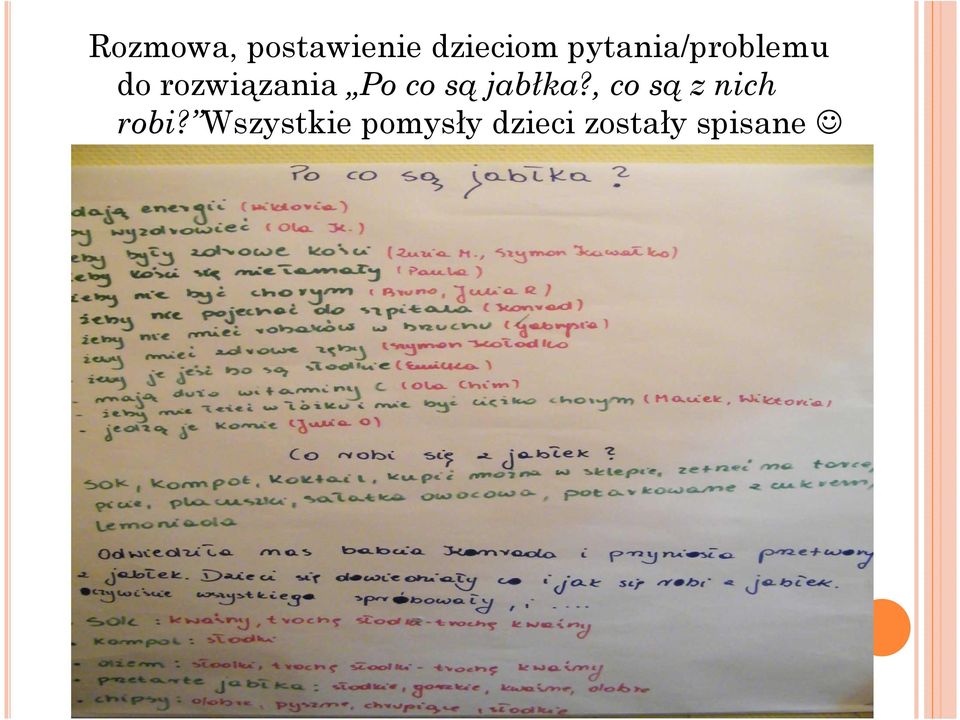 Rozmowa, postawienie dzieciom pytania/problemu
do rozwiązania „Po co są jabłka?, co są z nich
robi?”Wszystkie pomysły dzieci zostały spisane ☺
Po co są jabłka?
dają energii (Wiktoria)
by wyzdrowieć (Ola K.)
eby były zdrowe kości (Zuzia M., Szymon Kowałko)
żeby kości się nie łamały (Paula)
żeby nie być chorym (Bruno, Julia R)
żeby nie pojechać do szpitala (Konrad)
żeby nie mieć robaków w brzuchu (Gabrysia)
żeby mieć zdrowe zęby (Szymon Kołodko
- żeby je jeść bo są słodkie (Emilka)
- mają dużo witaminy C (Ola Chim)
- żeby nie leżeć w łóżku i nie być ciężko chorym (Maciek, Wiktoria)
- jedzą je konie (Julia O)
Co robi się z jabłek?
sok, kompot, koktail, kupić można w sklepie, zetrzeć na tarce,
picie, placuszki, sałatka owocowa, potarkowane z cukrem,
lemoniada
Odwiedziła nas babcia Konrada i przyniosła przetwory
z jabłek. Dzieci się dowiedziały co i jak się robi z jabłek.
Oczywiście wszystkiego spróbowały, i ....
- sok : kwaśny, trochę słodki - trochę kwaśny
- kompot : słodki
- dżem : słodki, trochę słodki - trochę kwaśny
- przetarte jabłka : słodkie, gorzkie, kwaśne, dobre
- chipsy : dobre, pyszne, chrupiące, słodkie